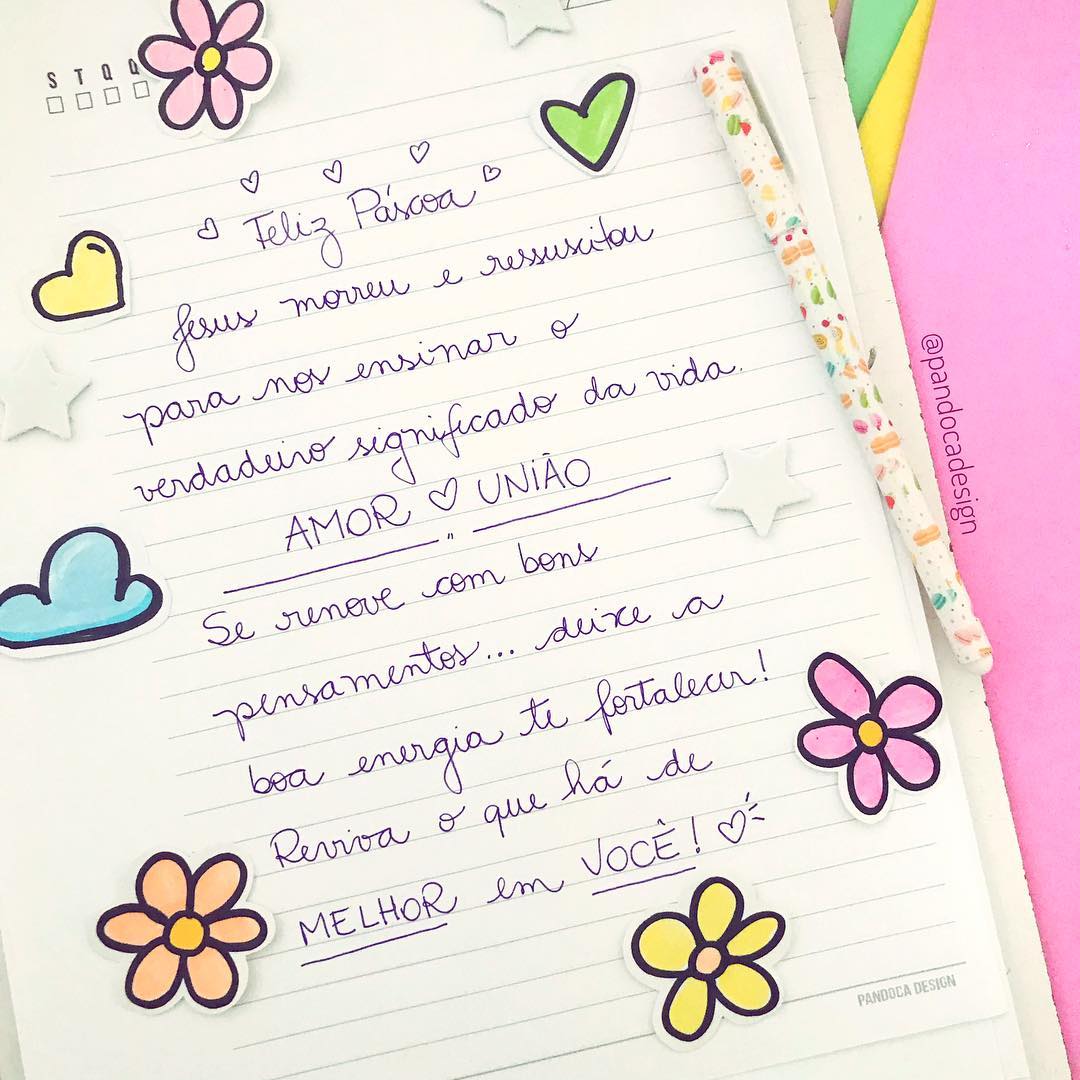 S T Q Q
Feliz Páscoa
Jesus morreu e ressuscitou
para nos ensinar o
verdadeiro significado da vida.
AMOR ♡ UNIÃO
"
Se renove com bons
pensamentos... deixe a
boa energia te fortalecer!
Reviva o que há de
MELHOR em VOCÊ! ♡
PANDOCA DESIGN
@pandocadesign